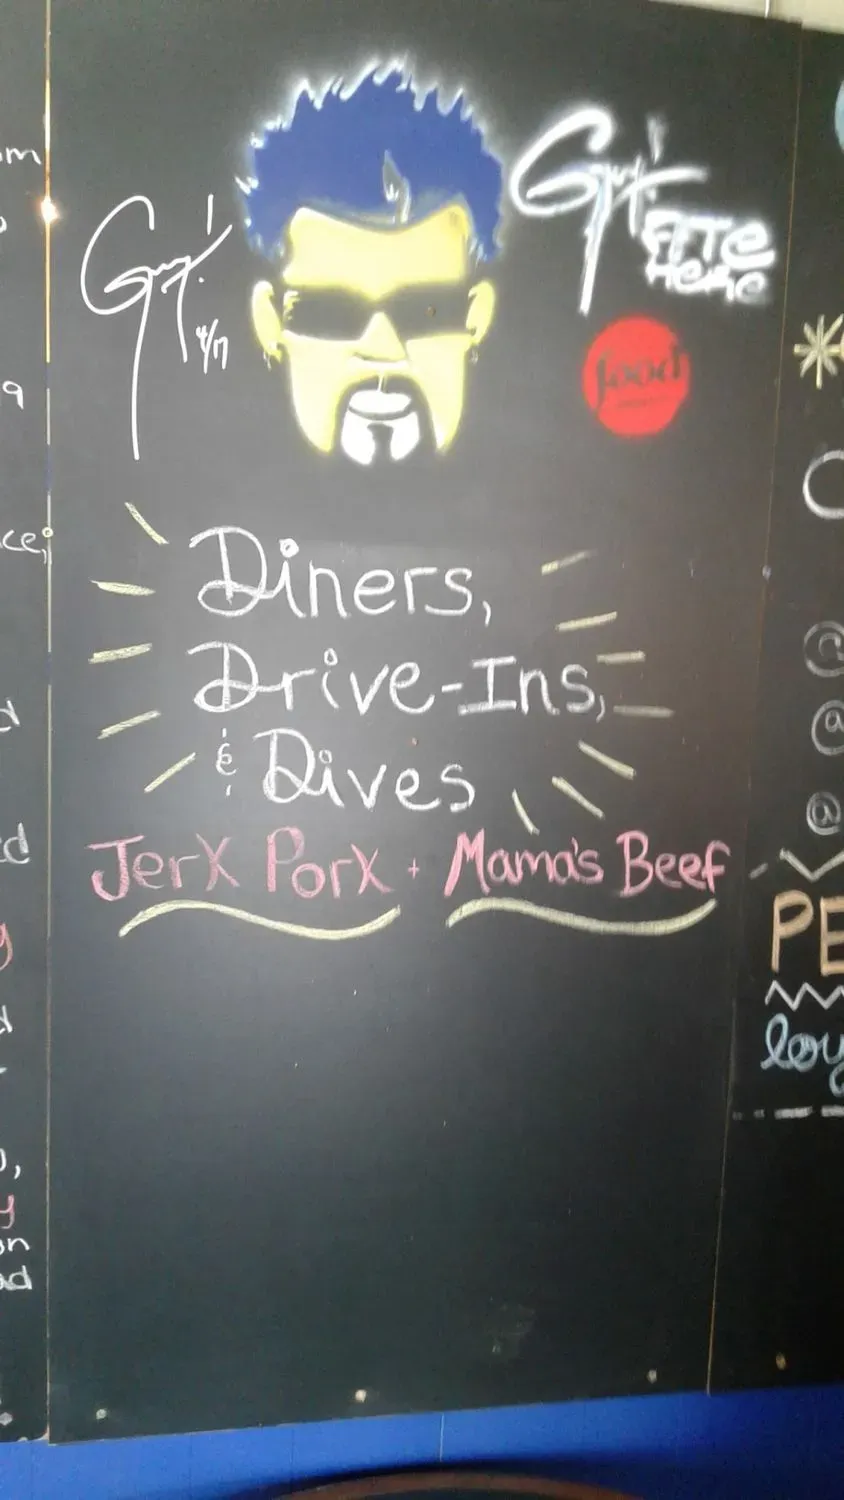 om
9
ce,
Guy!
4/17
Guy!
ATE
HERE
food
Diners,
Drive-Ins,
& Dives
Jerk Pork + Mama's Beef
ed
g
on
@
@
@
PE
loy